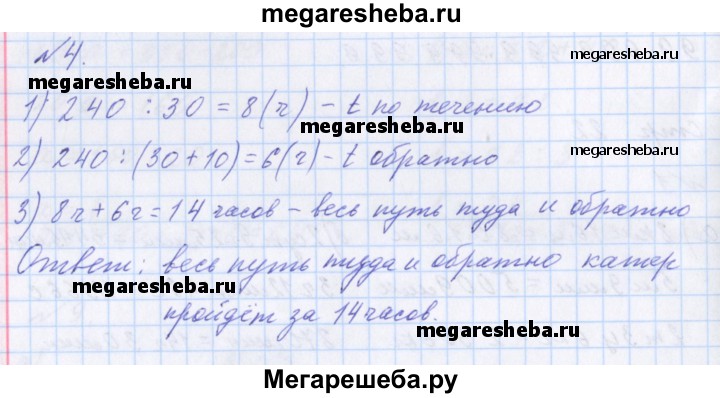 megaresheba.ru
№4.
megaresheba.ru
megaresheba.ru
1) 240 : 30 = 8(ч) – t по течению
megaresheba.ru
2) 240 : (30+10) = 6(ч) – t обратно
megaresheba.ru
3) 8ч + 6ч = 14 часов – весь путь туда и обратно
Ответ: весь путь туда и обратно катер
megaresheba.ru
пройдёт за 14 часов.
megaresheba.ru
Мегарешеба.ру